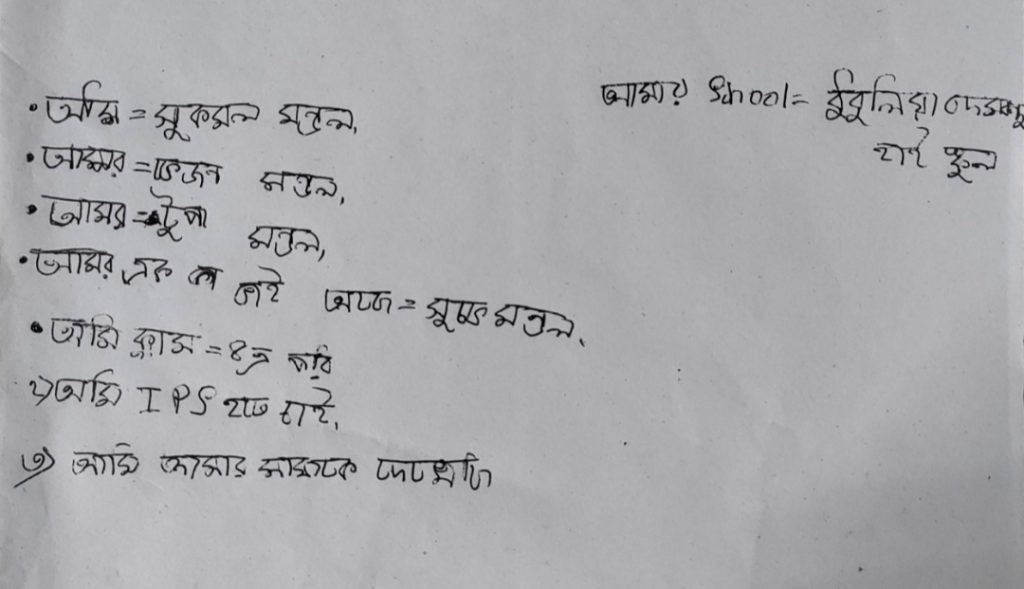 • আমি = সুকমল মন্ডল,
আমার School = দেশবন্ধু
হাই স্কুল
• আমার = মন্ডল,
• আমার = টুম্পা মন্ডল,
• আমার এক ভাই আছে = মন্ডল,
• আমি ক্লাস = ৪ এ পড়ি
২) আমি IPS হতে চাই,
৩) আমি আমার মামাকে দেখেছি